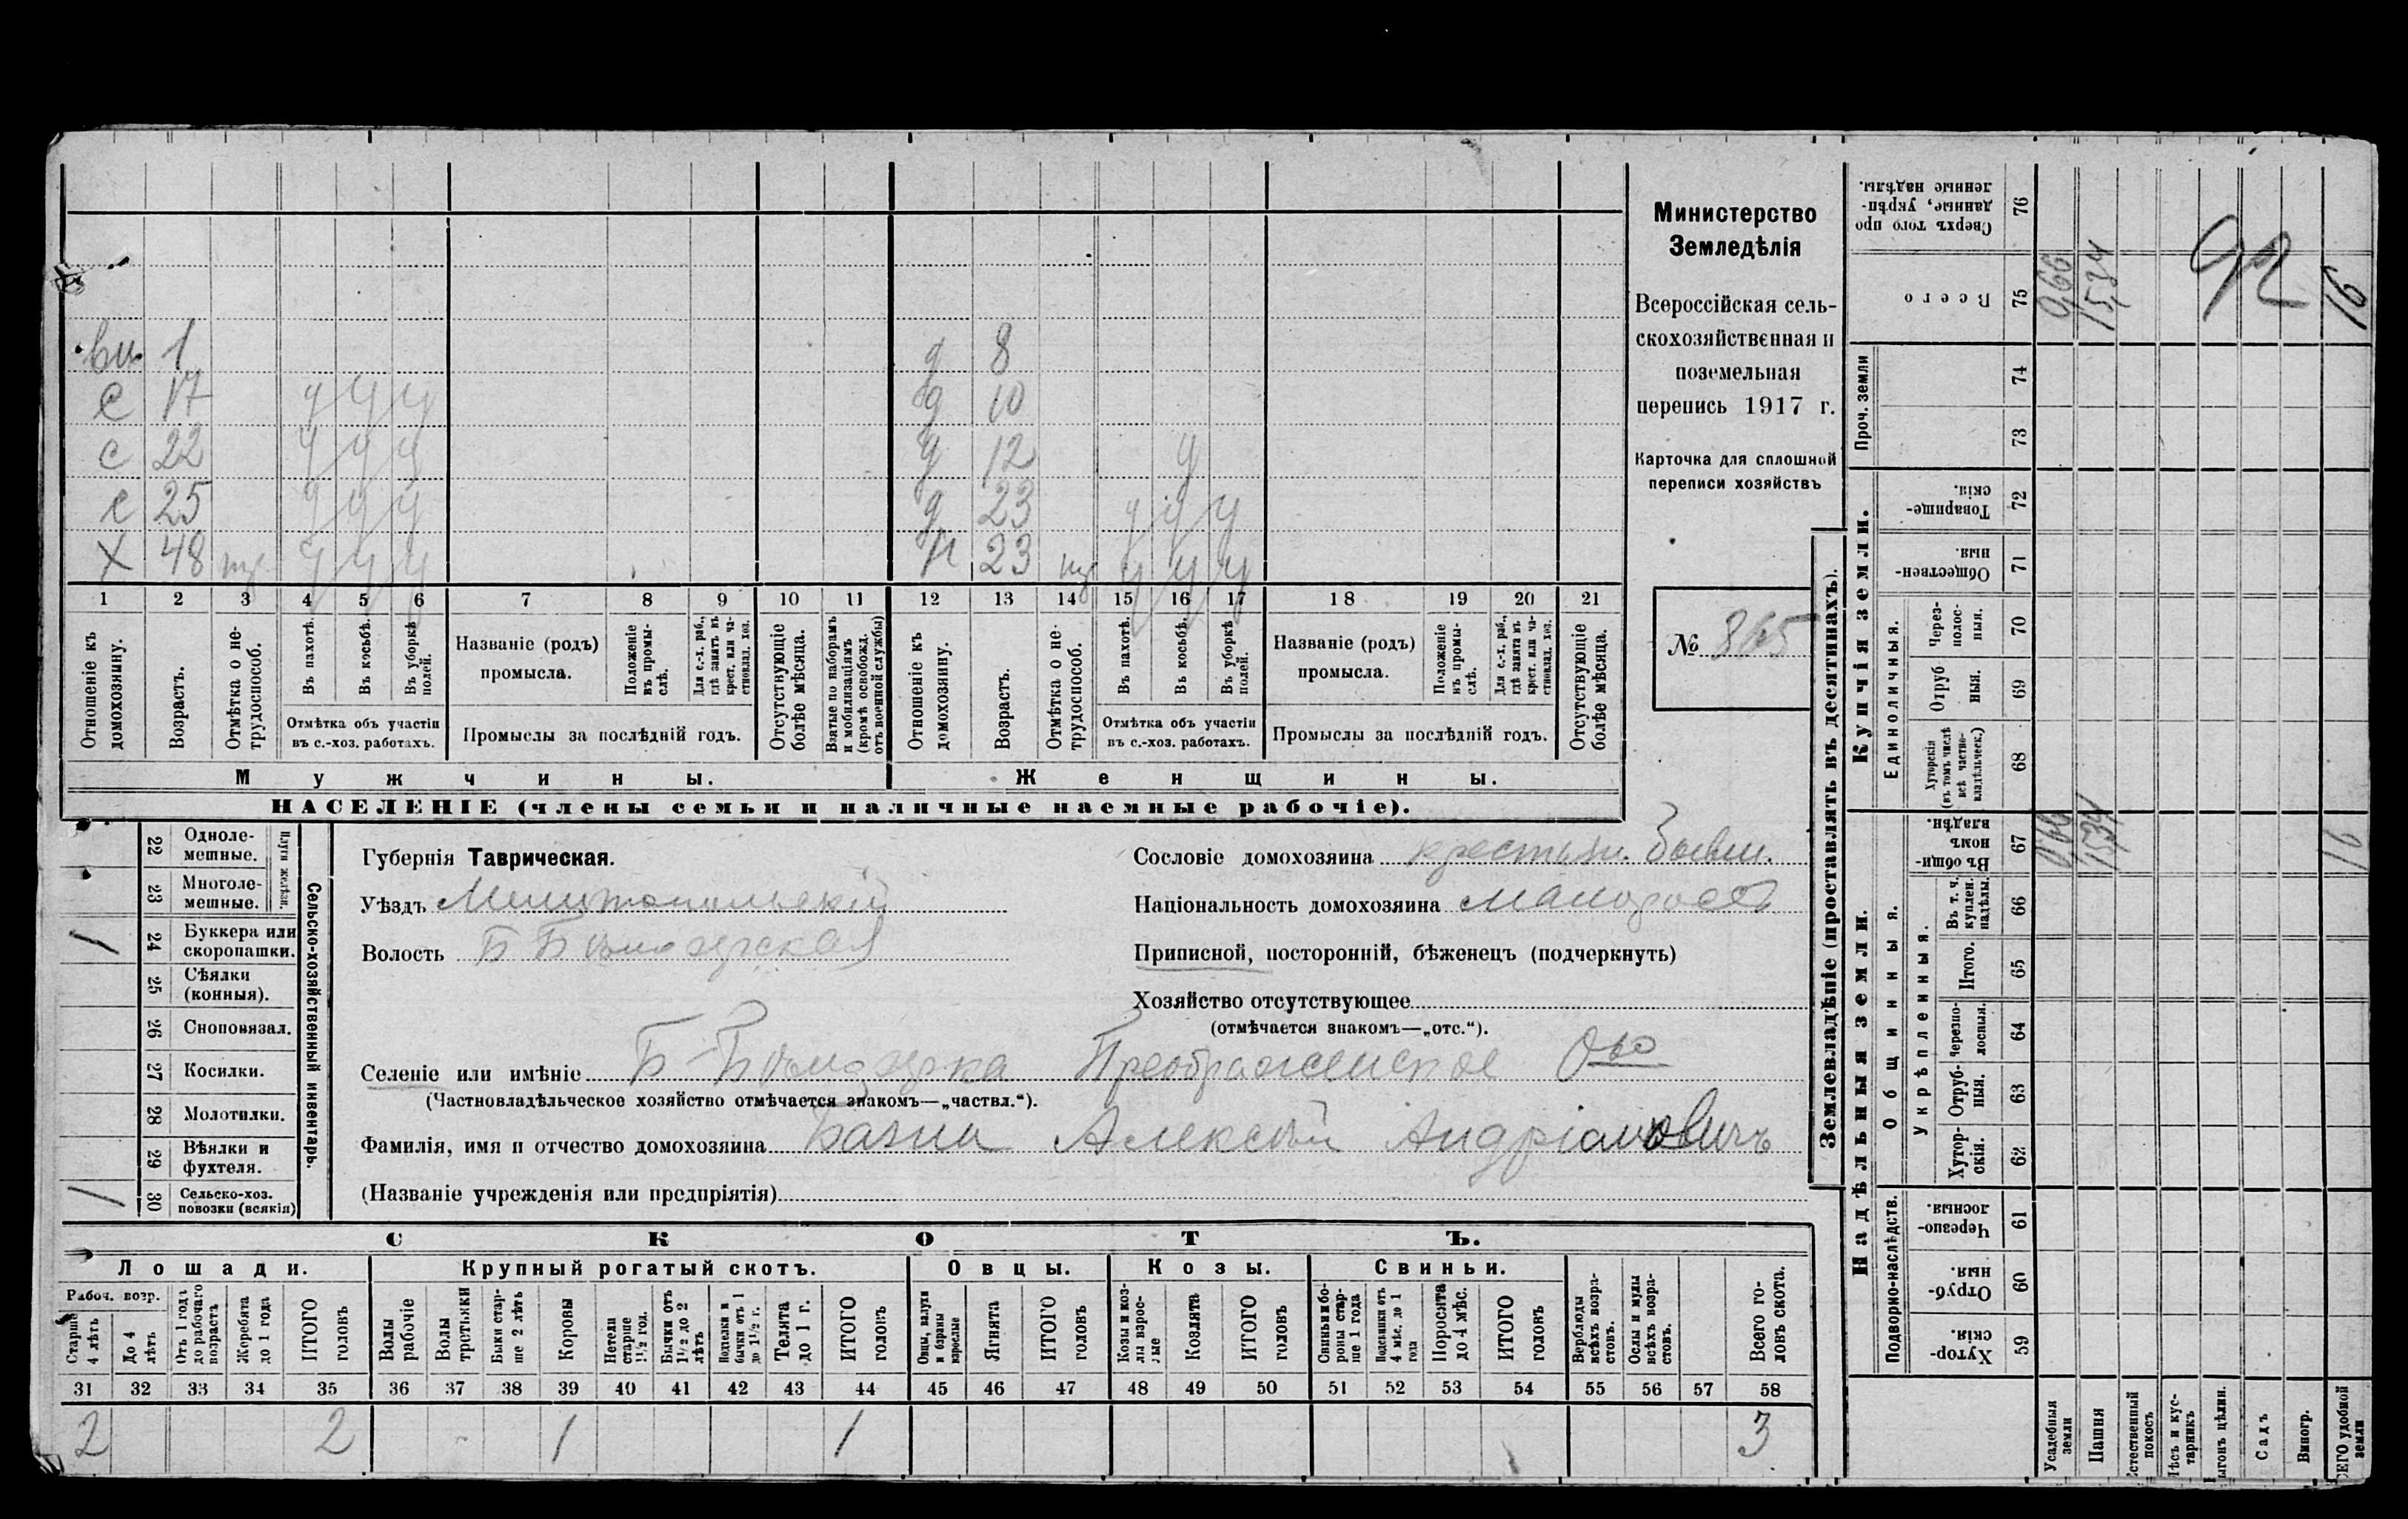 Министерство
Земледѣлія
Всероссійская сель-
скохозяйственная и
поземельная
перепись 1917 г.
Карточка для сплошной
переписи хозяйствъ
№ 865
вн. 1 д 8
с 17 ч ч ч д 10
с 22 ч ч ч д 12 ч
с 25 ч ч ч д 23 ч ч ч
Х 48 ч ч ч 23 ч ч ч
1 2 3 4 5 6 7 8 9 10 11 12 13 14 15 16 17 18 19 20 21
Отношеніе къ домохозяину.
Возрастъ.
Отмѣтка о не-трудоспособ.
Въ пахотѣ.
Въ косьбѣ.
Въ уборкѣ полей.
Отмѣтка объ участіи
въ с.-хоз. работахъ.
Названіе (родъ)
промысла.
Положеніе въ промы-слѣ.
Для с.-х. раб., гдѣ занятъ въ крест. или ча-стновлад. хоз.
Промыслы за послѣдній годъ.
Отсутствующіе болѣе мѣсяца.
Взятые по наборамъ и мобилизаціямъ (кромѣ освобожд. отъ военной службы)
Отношеніе къ домохозяину.
Возрастъ.
Отмѣтка о не-трудоспособ.
Въ пахотѣ.
Въ косьбѣ.
Въ уборкѣ полей.
Отмѣтка объ участіи
въ с.-хоз. работахъ.
Названіе (родъ)
промысла.
Положеніе въ промы-слѣ.
Для с.-х. раб., гдѣ занята въ крест. или ча-стновлад. хоз.
Промыслы за послѣдній годъ.
Отсутствующіе болѣе мѣсяца.
Мужчины. Женщины.
НАСЕЛЕНІЕ (члены семьи и наличные наемные рабочіе).
Сельско-хозяйственный инвентарь.
Плуги желѣзн.
22 Одноле-мешные.
23 Многоле-мешные.
/ 24 Буккера или скоропашки.
25 Сѣялки (конныя).
26 Сноповязал.
27 Косилки.
28 Молотилки.
29 Вѣялки и фухтеля.
/ 30 Сельско-хоз. повозки (всякія)
Губернія Таврическая.
Уѣздъ Мелитопольскій
Волость Б Бѣлозерская
Сословіе домохозяина крестьян. бывш.
Національность домохозяина малоросъ
Приписной, посторонній, бѣженецъ (подчеркнуть)
Хозяйство отсутствующее
(отмѣчается знакомъ—„отс.“).
Селеніе или имѣніе Б-Бѣлозерка Преображенское О-во
(Частновладѣльческое хозяйство отмѣчается знакомъ—„частвл.“).
Фамилія, имя и отчество домохозяина Алексѣй Андріановичъ
(Названіе учрежденія или предпріятія)
СКОТЪ.
Лошади. Крупный рогатый скотъ. Овцы. Козы. Свиньи.
Рабоч. возр.
Старше 4 лѣтъ
До 4 лѣтъ
Отъ 1 годъ до рабочаго возрастъ
Жеребята до 1 года
ИТОГО головъ
Волы рабочіе
Волы третьяки
Быки стар-ше 2 лѣтъ
Коровы
Нетели старше 1½ год.
Бычки отъ 1½ до 2 лѣтъ
Подтелки и бычки отъ 1 до 1½ г.
Телята до 1 г.
ИТОГО головъ
Овцы, валухи и бараны взрослые
Ягнята
ИТОГО головъ
Козы и коз-лы взрос-лые
Козлята
ИТОГО головъ
Свиньи и бо-роны стар-ше 1 года
Подсвинки отъ 4 мѣс. до 1 года
Поросята до 4 мѣс.
ИТОГО головъ
Верблюды всѣхъ возра-стовъ.
Ослы и мулы всѣхъ возра-стовъ.
Всего го-ловъ скота.
31 32 33 34 35 36 37 38 39 40 41 42 43 44 45 46 47 48 49 50 51 52 53 54 55 56 57 58
2 2 1 1 3
Землевладѣніе (проставлять въ десятинахъ).
Надѣльныя земли. Купчія земли. Проч. земли
Подворно-наслѣдств.
Общинныя.
Укрѣпленныя.
Единоличныя.
Хутор-скія. 59
Отруб-ныя. 60
Черезпо-лосныя. 61
Хутор-скія. 62
Отруб-ныя. 63
Черезпо-лосныя. 64
Итого. 65
Въ т. ч. куплен. надѣлы. 66
Въ общин-номъ владѣн. 67
Хуторскія (въ томъ числѣ всѣ частно-владѣльческ.) 68
Отруб ныя. 69
Через-полос-ныя. 70
Обществен-ныя. 71
Товарище-скія. 72
73
74
Всего 75
Сверхъ того про данные, укрѣп-ленные надѣлы. 76
Усадебныя земли 0,66 0,66
Пашня 15,34 15,34
Естественный покосъ
Лѣсъ и кус-тарникъ
Выгонъ цѣлин.
Садъ
Виногр.
ВСЕГО удобной земли 16 16
92